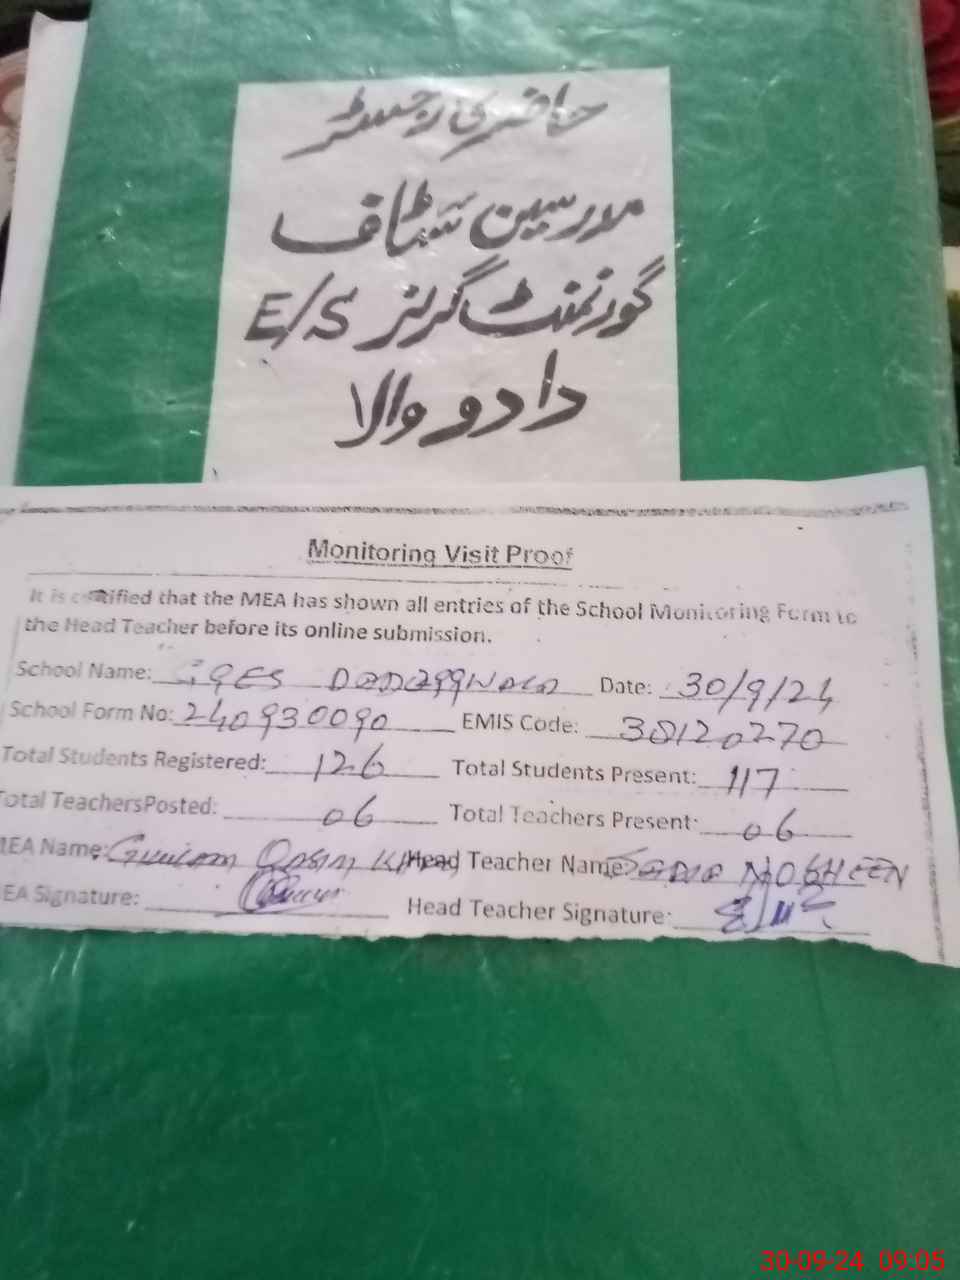 حاضری رجسٹر
مدرسین سٹاف
گورنمنٹ گرلز E/S
دادو والا
Monitoring Visit Proof
It is certified that the MEA has shown all entries of the School Monitoring Form to
the Head Teacher before its online submission.
School Name: GGES Date: 30/9/24
School Form No: 240930090 EMIS Code: 38120270
Total Students Registered: 126 Total Students Present: 117
Total TeachersPosted: 06 Total Teachers Present: 06
MEA Name: Ghulam Qasim Khan Head Teacher Name Sadia NOSHEEN
EA Signature: Head Teacher Signature:
30-09-24 09:05